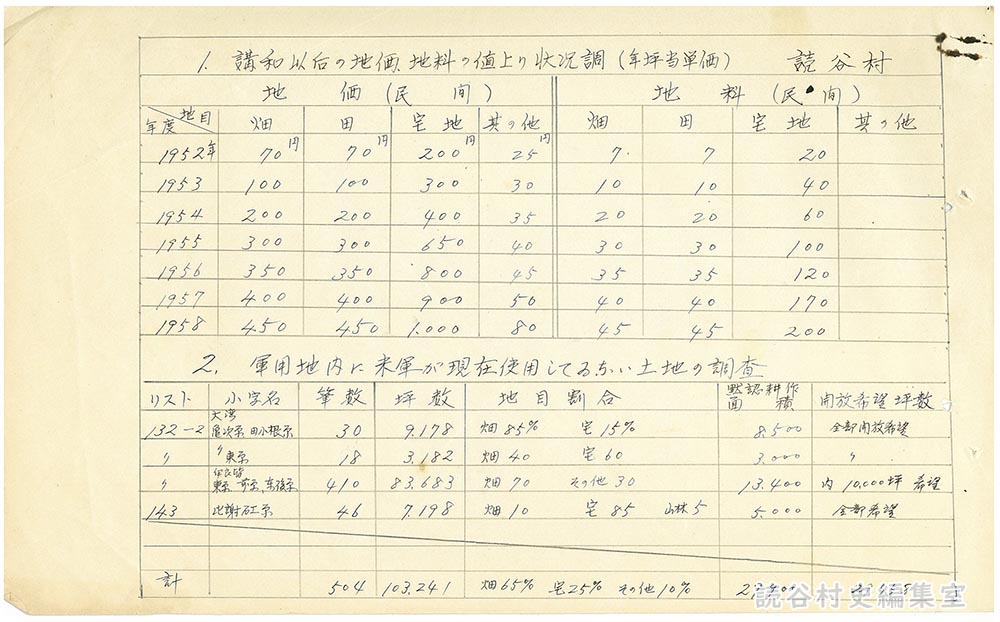 1. 講和以后の地価、地料の値上り状況調(年坪当単価) 読谷村
地 価(民 間) 地 料(民・間)
年度 地目 畑 田 宅地 其の他 畑 田 宅地 其の他
1952年 70円 70円 200円 25円 7 7 20
1953 100 100 300 30 10 10 40
1954 200 200 400 35 20 20 60
1955 300 300 650 40 30 30 100
1956 350 350 800 45 35 35 120
1957 400 400 900 50 40 40 170
1958 450 450 1.000 80 45 45 200
2. 軍用地内に米軍が現在使用してゐない土地の調査
リスト 小字名 筆数 坪数 地目割合 黙認耕作面積 開放希望坪数
132-2 大湾 30 9.178 畑85% 宅15% 8.500 全部開放希望
〃 〃東原 18 3.182 畑40 宅60 3.000 〃
〃 伊良皆 410 83.683 畑70 その他30 13.400 内10,000坪 希望
143 比謝矼原 46 7.198 畑10 宅85 山林5 5.000 全部希望
計 504 103.241 畑65% 宅25% その他10%
読谷村史編集室